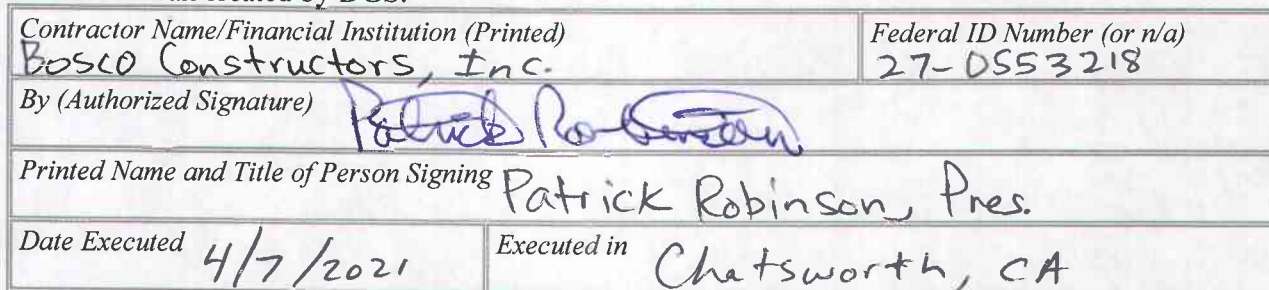 created by DGS.
Contractor Name/Financial Institution (Printed) Federal ID Number (or n/a)
Bosco Constructors, Inc. 27-0553218
By (Authorized Signature) Patrick Robinson
Printed Name and Title of Person Signing Patrick Robinson, Pres.
Date Executed 4/7/2021 Executed in Chatsworth, CA